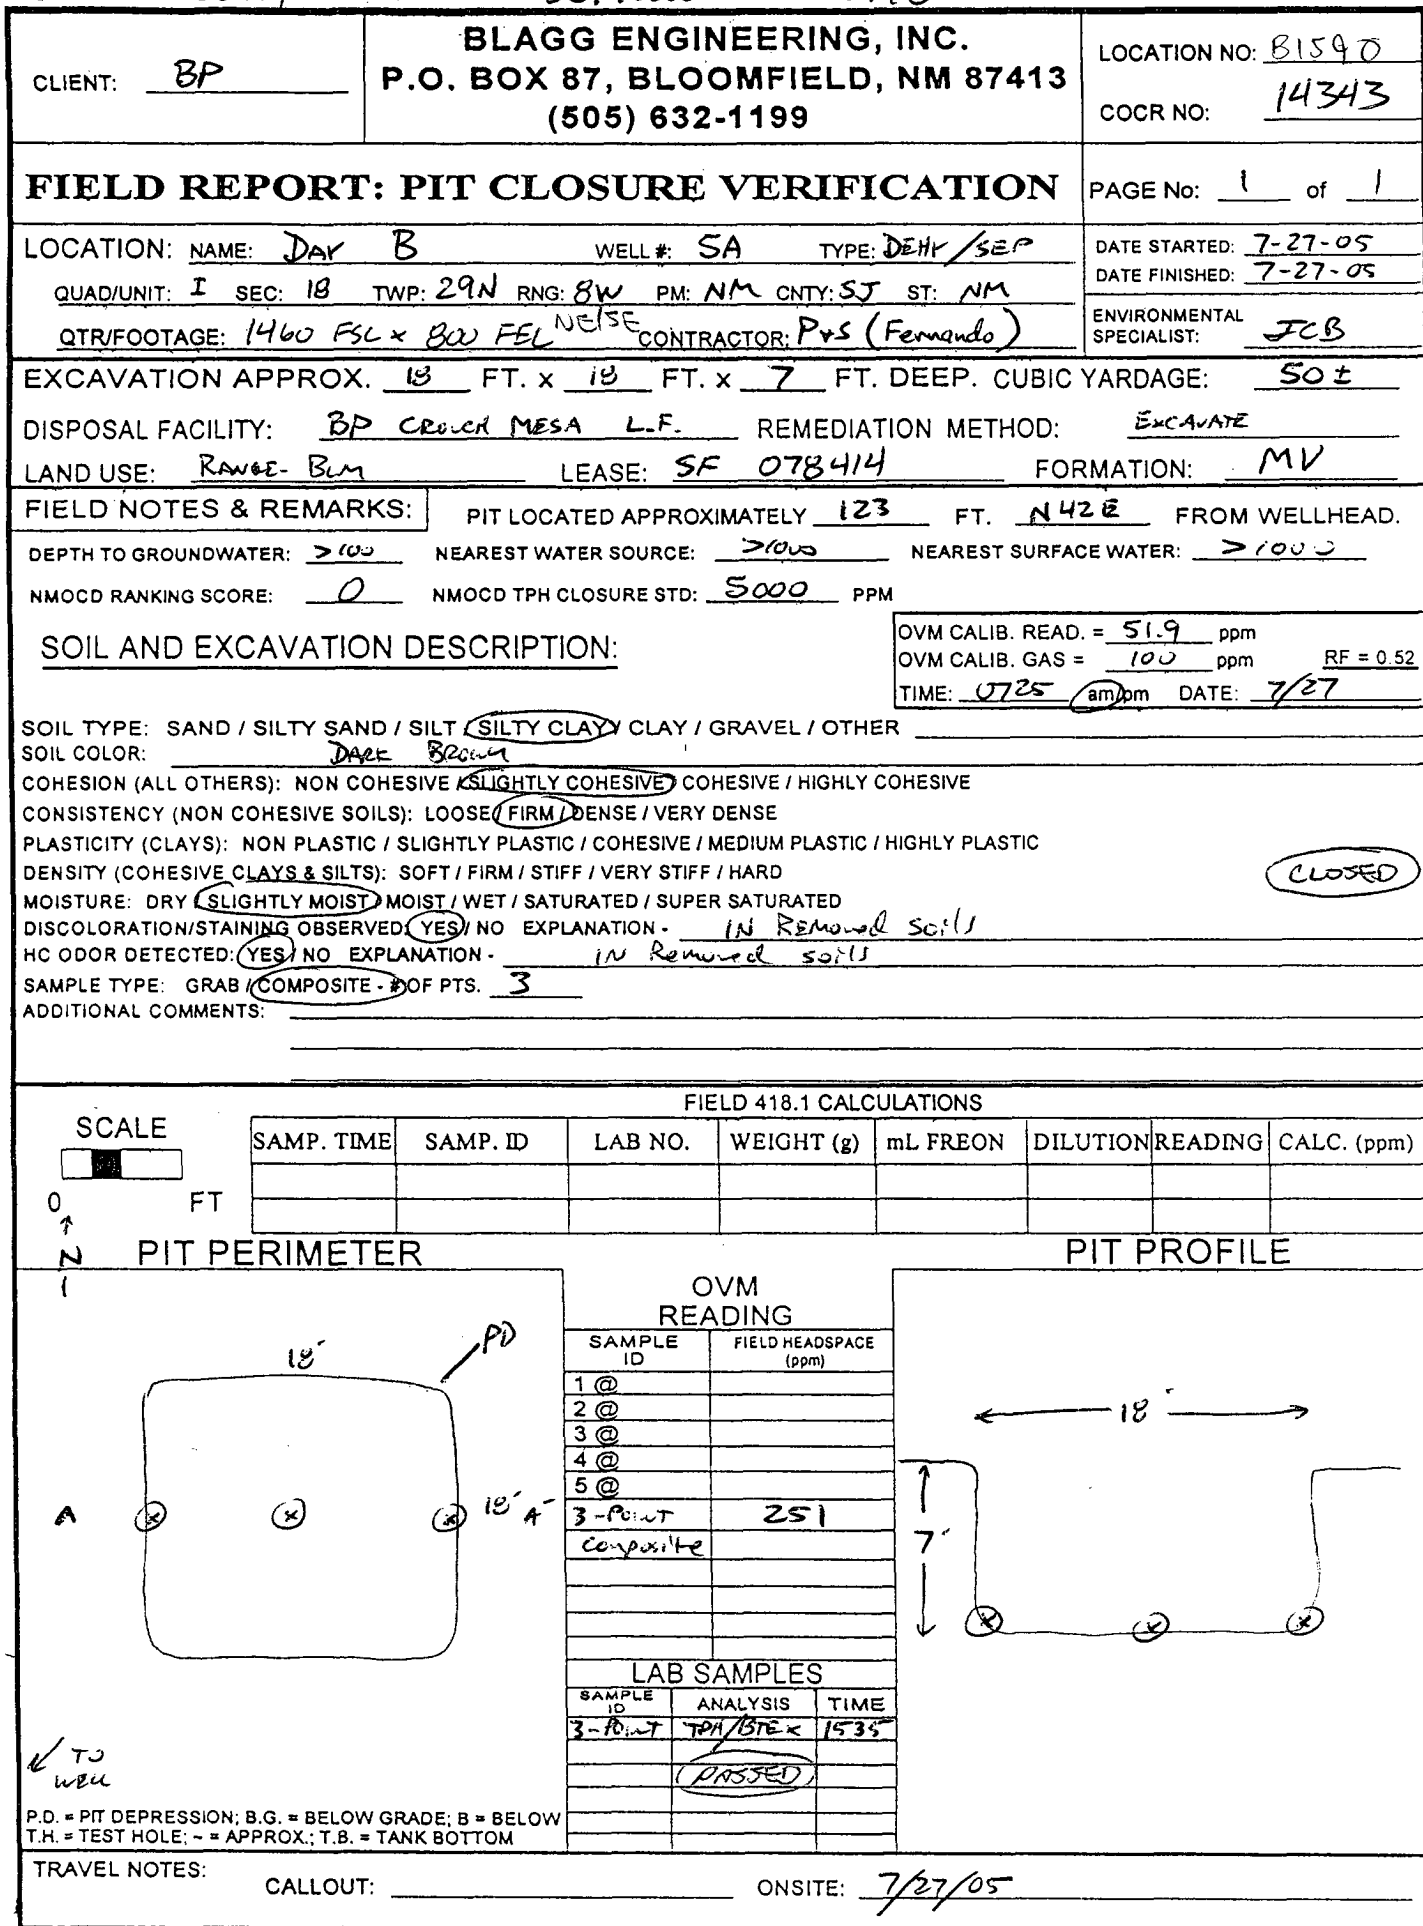 BLAGG ENGINEERING, INC.
P.O. BOX 87, BLOOMFIELD, NM 87413
(505) 632-1199
CLIENT: BP
LOCATION NO: B1590
COCR NO: 14343
FIELD REPORT: PIT CLOSURE VERIFICATION
PAGE No: 1 of 1
LOCATION: NAME: DAY B WELL #: 5A TYPE: DEHY/SEP
DATE STARTED: 7-27-05
DATE FINISHED: 7-27-05
QUAD/UNIT: I SEC: 18 TWP: 29N RNG: 8W PM: NM CNTY: SJ ST: NM
QTR/FOOTAGE: 1460 FSL x 800 FEL NE/SE CONTRACTOR: P+S (Fernando)
ENVIRONMENTAL
SPECIALIST: JCB
EXCAVATION APPROX. 18 FT. x 18 FT. x 7 FT. DEEP. CUBIC YARDAGE: 50 ±
DISPOSAL FACILITY: BP CROUCH MESA L.F. REMEDIATION METHOD: EXCAVATE
LAND USE: RANGE - BLM LEASE: SF 078414 FORMATION: MV
FIELD NOTES & REMARKS: PIT LOCATED APPROXIMATELY 123 FT. N42E FROM WELLHEAD.
DEPTH TO GROUNDWATER: >100 NEAREST WATER SOURCE: >1000 NEAREST SURFACE WATER: >1000
NMOCD RANKING SCORE: 0 NMOCD TPH CLOSURE STD: 5000 PPM
SOIL AND EXCAVATION DESCRIPTION:
OVM CALIB. READ. = 51.9 ppm
OVM CALIB. GAS = 100 ppm RF = 0.52
TIME: 0725 am/pm DATE: 7/27
SOIL TYPE: SAND / SILTY SAND / SILT / SILTY CLAY / CLAY / GRAVEL / OTHER
SOIL COLOR: DARK BROWN
COHESION (ALL OTHERS): NON COHESIVE / SLIGHTLY COHESIVE / COHESIVE / HIGHLY COHESIVE
CONSISTENCY (NON COHESIVE SOILS): LOOSE / FIRM / DENSE / VERY DENSE
PLASTICITY (CLAYS): NON PLASTIC / SLIGHTLY PLASTIC / COHESIVE / MEDIUM PLASTIC / HIGHLY PLASTIC
DENSITY (COHESIVE CLAYS & SILTS): SOFT / FIRM / STIFF / VERY STIFF / HARD
CLOSED
MOISTURE: DRY / SLIGHTLY MOIST / MOIST / WET / SATURATED / SUPER SATURATED
DISCOLORATION/STAINING OBSERVED: YES / NO EXPLANATION - IN Removed Soils
HC ODOR DETECTED: YES / NO EXPLANATION - IN Removed soils
SAMPLE TYPE: GRAB / COMPOSITE - # OF PTS. 3
ADDITIONAL COMMENTS:
FIELD 418.1 CALCULATIONS
SCALE
0 FT
SAMP. TIME SAMP. ID LAB NO. WEIGHT (g) mL FREON DILUTION READING CALC. (ppm)
N
PIT PERIMETER
PIT PROFILE
OVM
READING
SAMPLE ID FIELD HEADSPACE (ppm)
1 @
2 @
3 @
4 @
5 @
3-Point 251
composite
PD
18'
A 18' A'
18'
7'
LAB SAMPLES
SAMPLE ID ANALYSIS TIME
3-Point TPH/BTEX 1535
PASSED
TO
WELL
P.D. = PIT DEPRESSION; B.G. = BELOW GRADE; B = BELOW
T.H. = TEST HOLE; ~ = APPROX.; T.B. = TANK BOTTOM
TRAVEL NOTES:
CALLOUT: ONSITE: 7/27/05